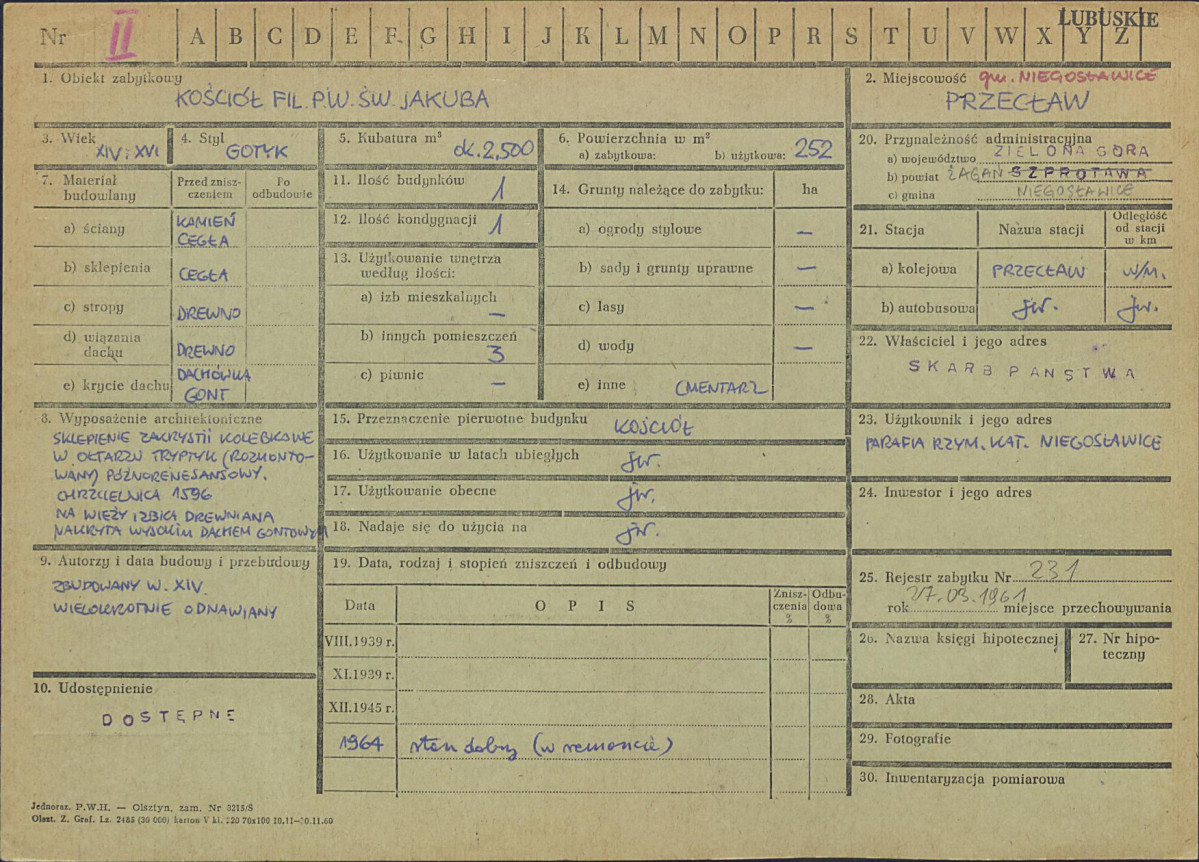 LUBUSKIE
Nr II A B C D E F G H I J K L M N O P R S T U V W X Y Z
1. Obiekt zabytkowy
KOŚCIÓŁ FIL. P.W. ŚW. JAKUBA
2. Miejscowość gm. NIEGOSŁAWICE
PRZECŁAW
3. Wiek
XIV i XVI
4. Styl
GOTYK
5. Kubatura m³
ok. 2,500
6. Powierzchnia w m²
a) zabytkowa: b) użytkowa: 252
20. Przynależność administracyjna
a) województwo ZIELONA GÓRA
b) powiat ŻAGAŃ SZPROTAWA
c) gmina NIEGOSŁAWICE
7. Materiał budowlany
Przed zniszczeniem
Po odbudowie
a) ściany KAMIEŃ
CEGŁA
b) sklepienia CEGŁA
c) stropy DREWNO
d) wiązania dachu DREWNO
e) krycie dachu DACHÓWKA
GONT
11. Ilość budynków 1
12. Ilość kondygnacji 1
13. Użytkowanie wnętrza
według ilości:
a) izb mieszkalnych –
b) innych pomieszczeń 3
c) piwnic –
14. Grunty należące do zabytku: ha
a) ogrody stylowe –
b) sady i grunty uprawne –
c) lasy –
d) wody –
e) inne CMENTARZ
21. Stacja Nazwa stacji Odległość od stacji w km
a) kolejowa PRZECŁAW W/M.
b) autobusowa jw. jw.
22. Właściciel i jego adres
SKARB PAŃSTWA
8. Wyposażenie architektoniczne
SKLEPIENIE ZAKRYSTII KOLEBKOWE
W OŁTARZU TRYPTYK (ROZMONTO-
WANY) PÓŹNORENESANSOWY.
CHRZCIELNICA 1596
NA WIEŻY IZBICA DREWNIANA
NAKRYTA WYSOKIM DACHEM GONTOWYM
15. Przeznaczenie pierwotne budynku KOŚCIÓŁ
16. Użytkowanie w latach ubiegłych jw.
17. Użytkowanie obecne jw.
18. Nadaje się do użycia na jw.
23. Użytkownik i jego adres
PARAFIA RZYM. KAT. NIEGOSŁAWICE
24. Inwestor i jego adres
9. Autorzy i data budowy i przebudowy
ZBUDOWANY W. XIV
WIELOKROTNIE ODNAWIANY
10. Udostępnienie
DOSTĘPNE
19. Data, rodzaj i stopień zniszczeń i odbudowy
Data OPIS Zniszczenia % Odbudowa %
VIII.1939 r.
XI.1939 r.
XII.1945 r.
1964 stan dobry (w remoncie)
25. Rejestr zabytku Nr 231
rok 27.03.1961 miejsce przechowywania
26. Nazwa księgi hipotecznej
27. Nr hipoteczny
28. Akta
29. Fotografie
30. Inwentaryzacja pomiarowa
Jednoraz. P.W.H. — Olsztyn, zam. Nr 3215/S
Olszt. Z. Graf. Lz. 2485 (30 000) karton V kl. 220 70x100 10.11—10.11.60